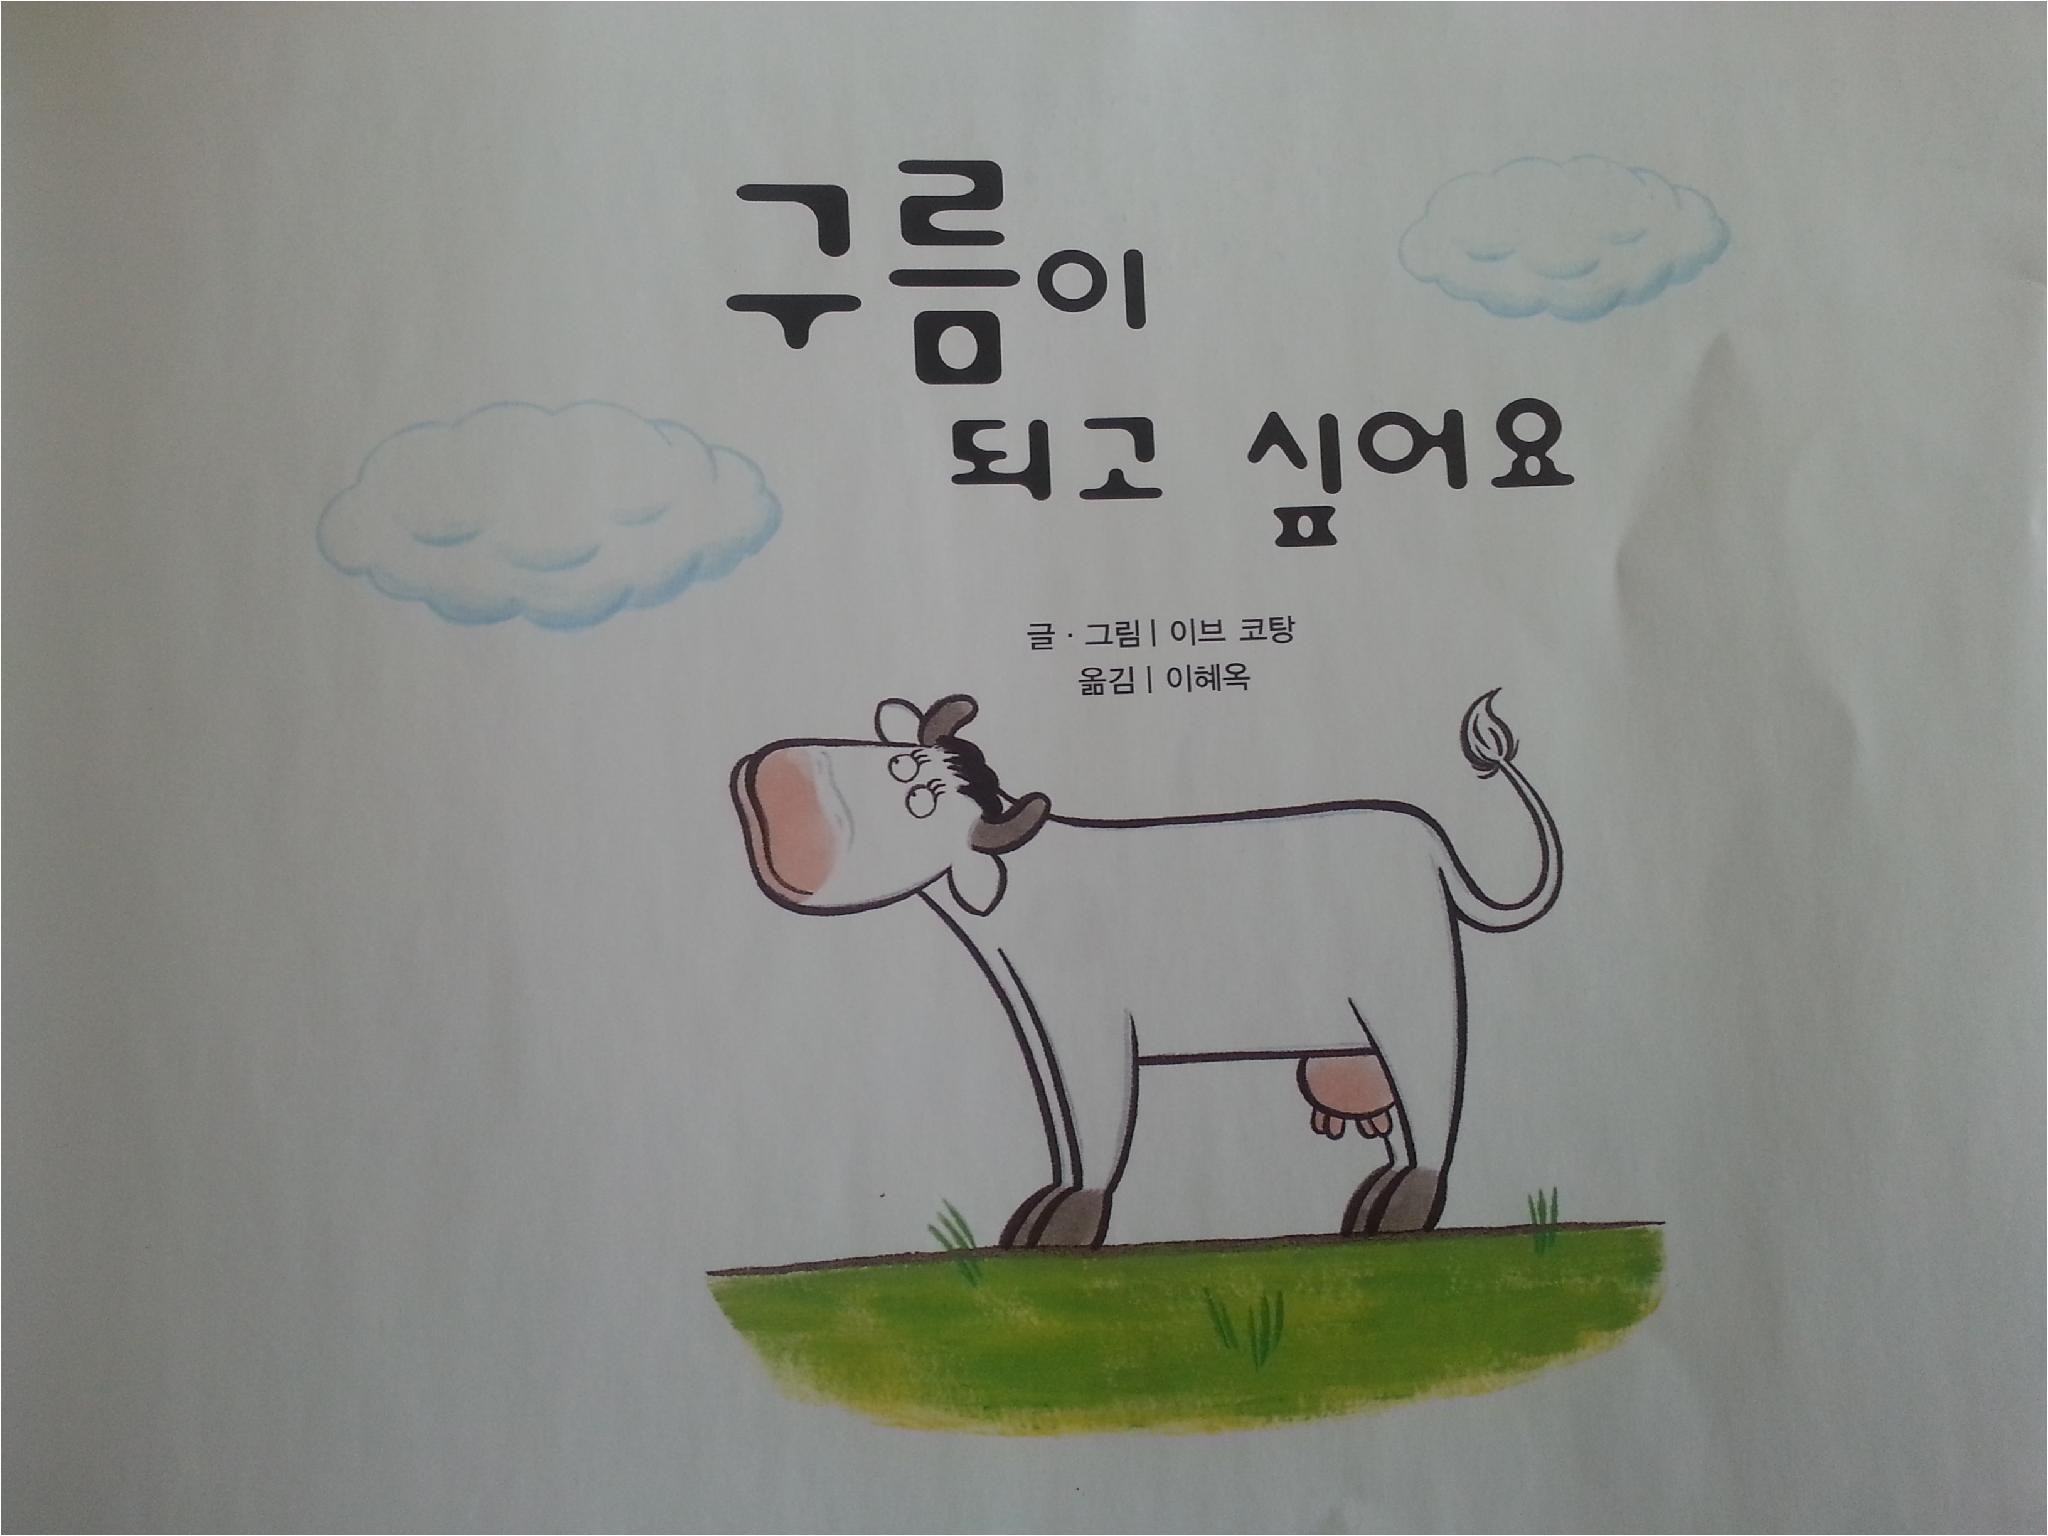 구름이
되고 싶어요
글 · 그림 | 이브 코탕
옮김 | 이혜옥